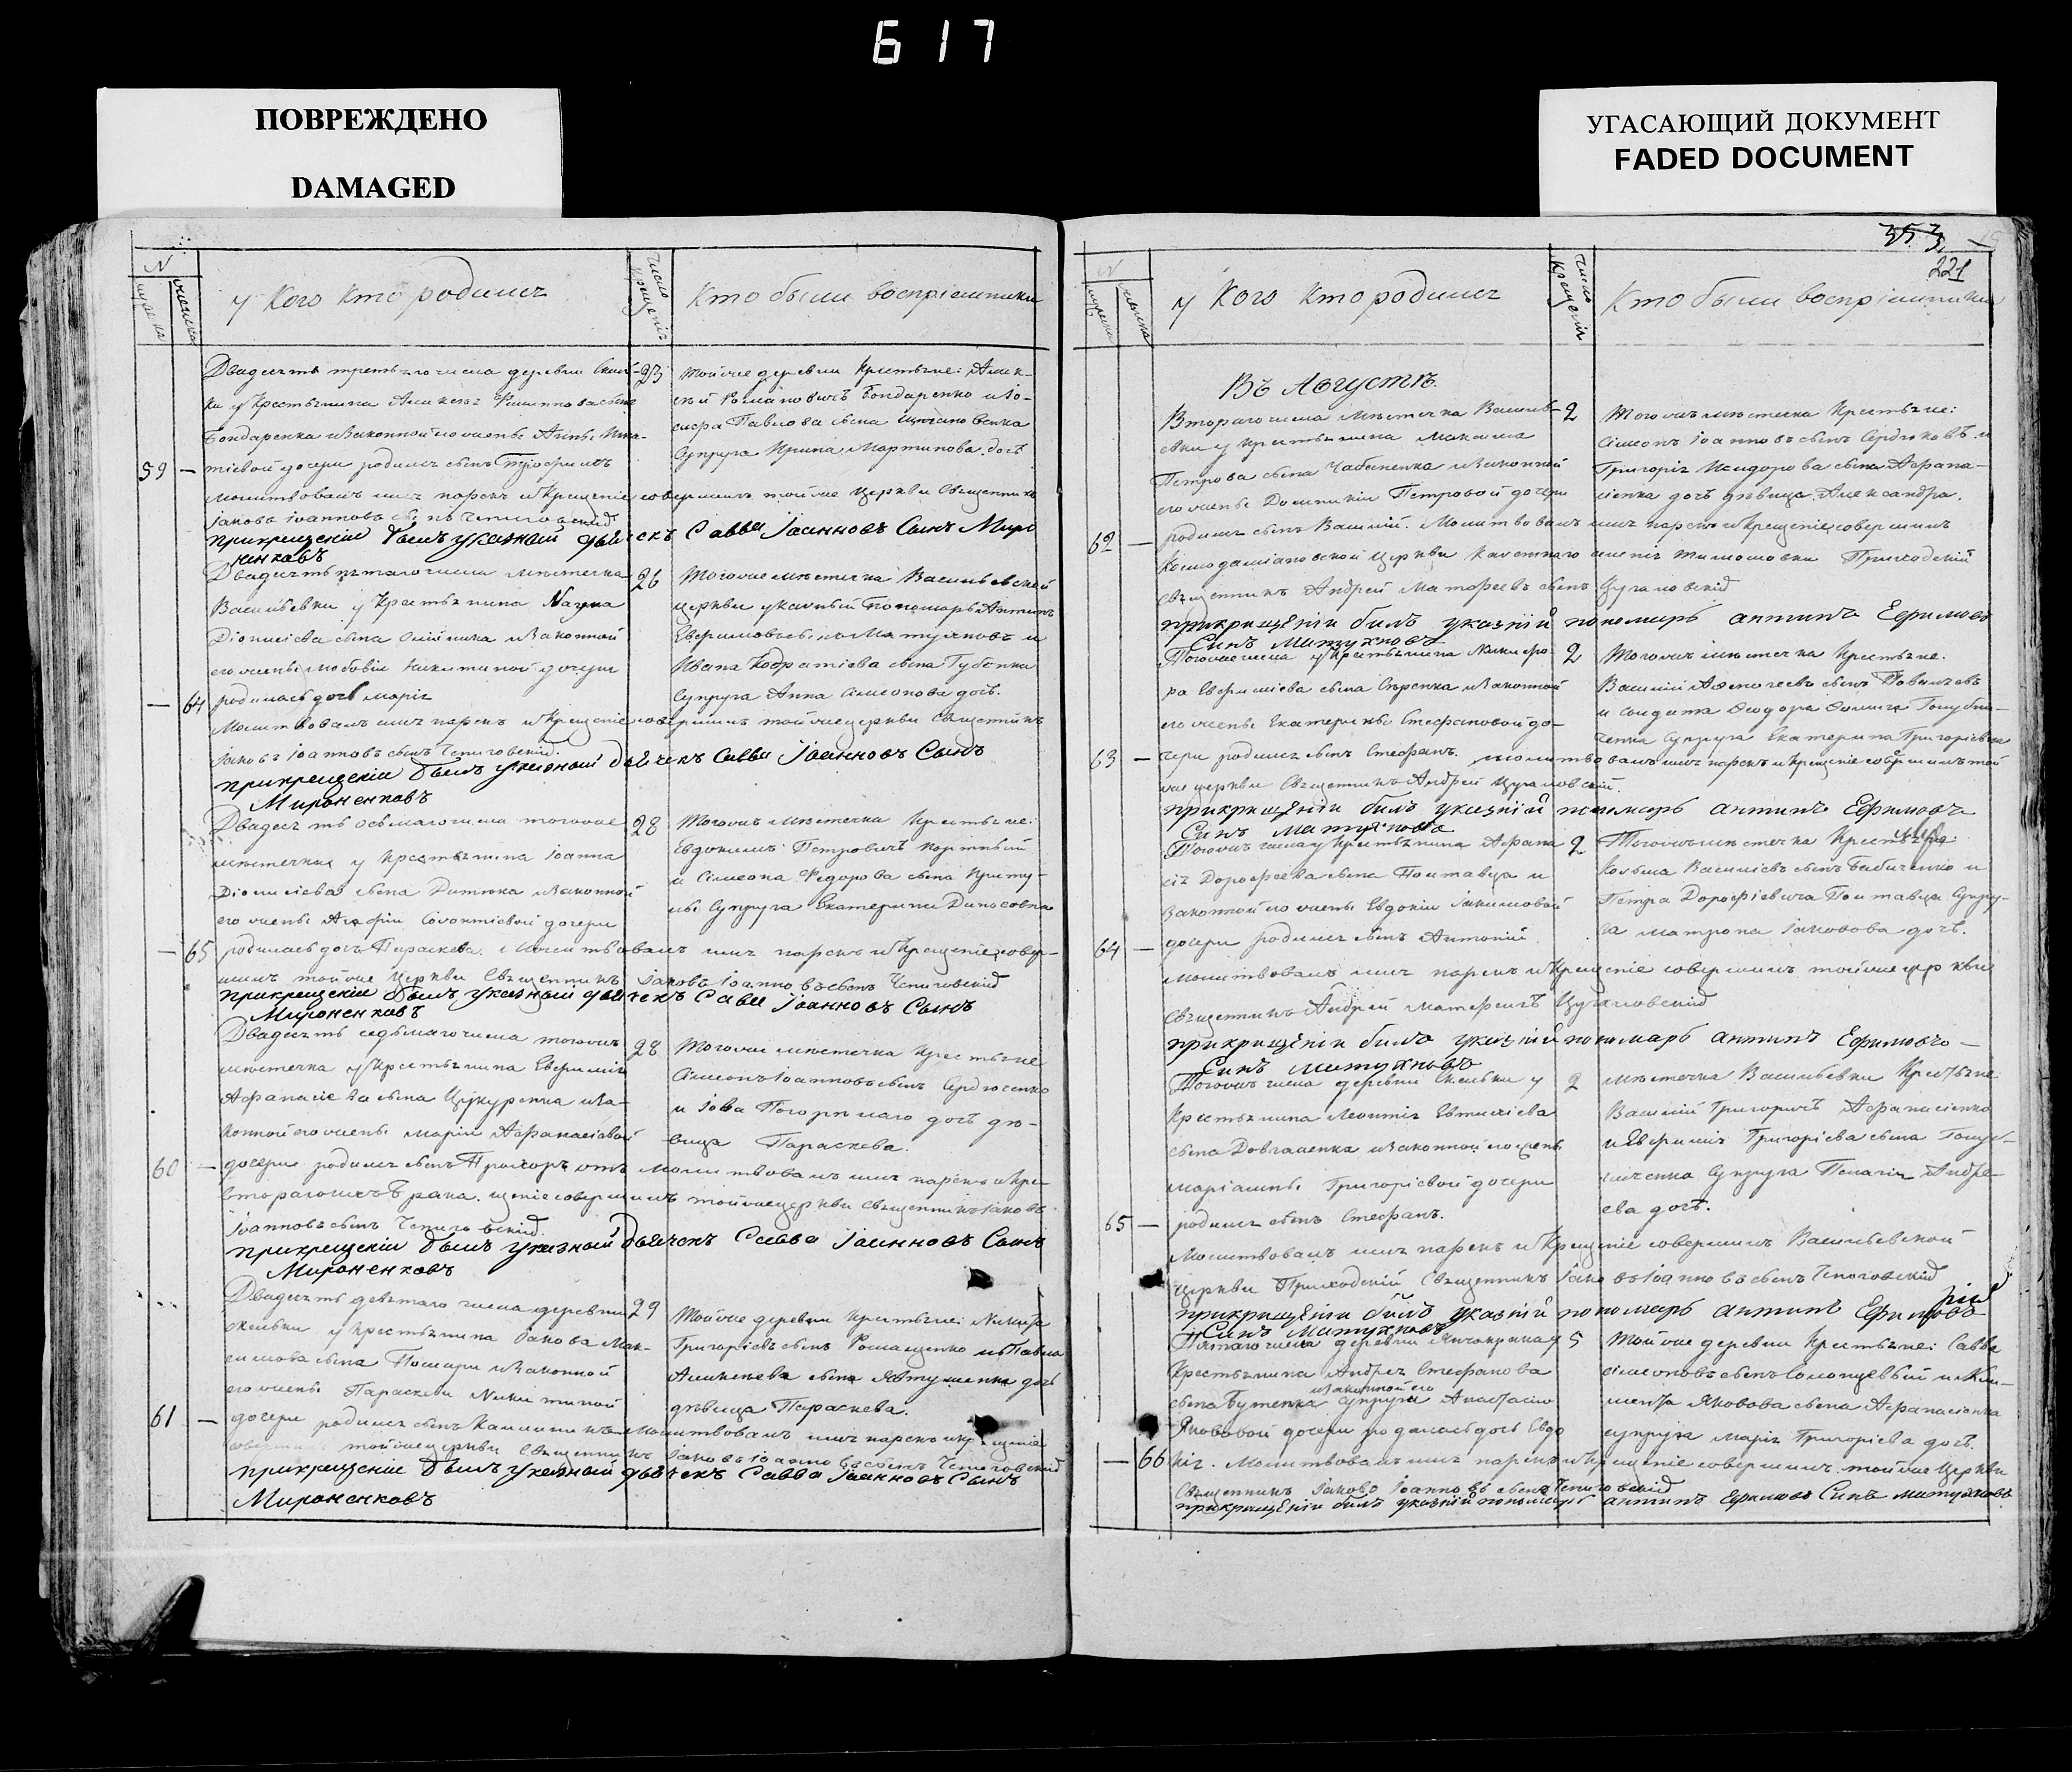 617
ПОВРЕЖДЕНО
DAMAGED
УГАСАЮЩИЙ ДОКУМЕНТ
FADED DOCUMENT
N
у Кого Кто родился
число крещенія
Кто были воспріемники
Двадесять третьяго числа деревни
ки у Крестьянина Алексея Филиппова сына
Бондаренка и законной его жены Анны
59 — тіевой дочери родился сынъ
молитвовалъ имя нарекъ и Крещеніе совершилъ той же Церкви Священникъ
Іаковъ Іоанновъ сынъ
прикрещеніи былъ указный дьячекъ Савва Іоанновъ Сынъ Миро
ненковъ
23
той же деревни Крестьяне: Алек-
сей Романовичъ Бондаренко и Іо-
сифа Павлова сына
Супруга Ирина Мартинова дочь
Двадесять пятаго числа мѣстечка
Васильевки у Крестьянина Наума
Діонисіева сына Олійника и законной
его жены Любовіи Никитиной дочери
— 64 родилась дочь Марія
Молитвовалъ имя нарекъ и Крещеніе совершилъ той же церкви Священникъ
Іаковъ Іоанновъ сынъ
прикрещеніи былъ указный дьячекъ Савва Іоанновъ Сынъ
Мироненковъ
26
Того же мѣстечка Васильевской
церкви указный Пономарь Антипъ
Евфимовъ сынъ Матухновъ и
Ивана Кодратіева сына Губенка
Супруга Анна Симеонова дочь.
Двадесять осьмаго числа того же
мѣстечка у Крестьянина Іоанна
Діонисіева сына и законной
его жены Агафіи дочери
— 65 родилась дочь Параскева. Молитвовалъ имя нарекъ и Крещеніе совер-
шилъ той же Церкви Священникъ Іаковъ Іоанновъ сынъ
прикрещеніи былъ указный дьячекъ Савва Іоанновъ Сынъ
Мироненковъ
28
Того же мѣстечка Крестьяне:
Евдокимъ Петровичъ
и Симеона Федорова сына
Супруга Екатерина
Двадесять седьмаго числа того же
мѣстечка у Крестьянина Евфимія
Афанасіева сына Цукуренка и за-
конной его жены Маріи Афанасіевой
60 — дочери родился сынъ Прохоръ отъ молитвовалъ имя нарекъ и Кре-
втораго брака. щеніе совершилъ той же церкви Священникъ Іаковъ
Іоанновъ сынъ
прикрещеніи былъ указный дьячекъ Савва Іоанновъ Сынъ
Мироненковъ
28
Того же мѣстечка Крестьяне
Симеонъ Іоанновъ сынъ Сердюченко
и Іова дочь дѣ-
вица Параскева.
Двадесять девятаго числа деревни
Скельки у Крестьянина Іакова Мак-
симова сына и законной
его жены Параскеви Никитиной
61 — дочери родился сынъ молитвовалъ имя нарекъ и крещеніе
совершилъ той же церкви Священникъ Іаковъ Іоанновъ сынъ
прикрещеніи былъ указный дьячекъ Савва Іоанновъ Сынъ
Мироненковъ
29
Той же деревни Крестьяне: Никита
Григорьевъ сынъ Ромащенко и Павла
Алексеева сына Явтушенка дочь
дѣвица Параскева.
221
N
у Кого Кто родился
число крещенія
Кто были воспріемники
Въ Августѣ.
Втораго числа мѣстечка Василь-
евки у крестьянина Максима
Петрова сына Чабаненка и законной
его жены Домникіи Петровой дочери
62 — родился сынъ Василій. Молитвовалъ имя нарекъ и Крещеніе совершилъ
Космодаміановской Церкви Приходскій
священникъ Андрей Матфеевъ сынъ
прикрищеніи билъ указній пономарь антипъ Ефимовъ
Синъ Матухновъ
2
Того же мѣстечка Крестьяне:
Симеонъ Іоанновъ сынъ Сердюковъ и
Григорія Исидорова сына Афана-
сіенка дочь дѣвица Александра.
Того же числа у Крестьянина Никифо-
ра сына и законной
его жены Екатерины Стефановой до-
63 — чери родился сынъ Стефанъ. молитвовалъ имя нарекъ и крещеніе совершилъ той
же церкви Священникъ Андрей
прикрищеніи билъ указній пономарь антипъ Ефимовъ
Синъ Матухновъ
2
Того же мѣстечка Крестьяне.
Василій сынъ
и солдата Феодора
Супруга Екатерина Григоріева
Того же числа у Крестьянина Афана
сія Дорофеева сына Полтавца и
законной его жены Евдокіи Іакимовой
64 — дочери родился сынъ Антоній
молитвовалъ имя нарекъ и Крещеніе совершилъ той же церкви
Священникъ Андрей Матфеичъ
прикрищеніи билъ указній пономарь антипъ Ефимовъ
Синъ матухновъ
2
Того же мѣстечка Крестьяне:
Козьма Василіевъ сынъ Бабиченко и
Петра Дорофіевича Полтавца Супру-
га Матрона Іаковова дочь.
Того же числа деревни Скельки у
Крестьянина Леонтія Евтихіева
сына Довгаленка и законной его жены
Маріамны Григоріевой дочери
65 — родился сынъ Стефанъ.
Молитвовалъ имя нарекъ и Крещеніе совершилъ Васильевской
церкви Приходскій Священникъ Іаковъ Іоанновъ сынъ
прикрищеніи билъ указній пономарь антипъ Ефимовъ
Синъ Матухновъ
2
мѣстечка Васильевки Крестьяне
Василій Григоричъ Афанасіенко
и Евфимія Григоріева сына
Супруга Пелагія Андре-
ева дочь.
Пятаго числа деревни у
Крестьянина Андрея Стефанова
сына Бутенка и законной его супруги Анастасіи
Якововой дочери родилась дочь Евдо
— 66 кія. Молитвовалъ имя нарекъ и Крещеніе совершилъ той же Церкви
Священникъ Іаковъ Іоанновъ сынъ
прикрищеніи билъ указній пономарь антипъ Ефимовъ Синъ матухновъ
5
той же деревни Крестьяне: Савва
Симеоновъ сынъ и Кли-
мента Яковова сына Афанасіенка
супруга Марія Григоріева дочь.